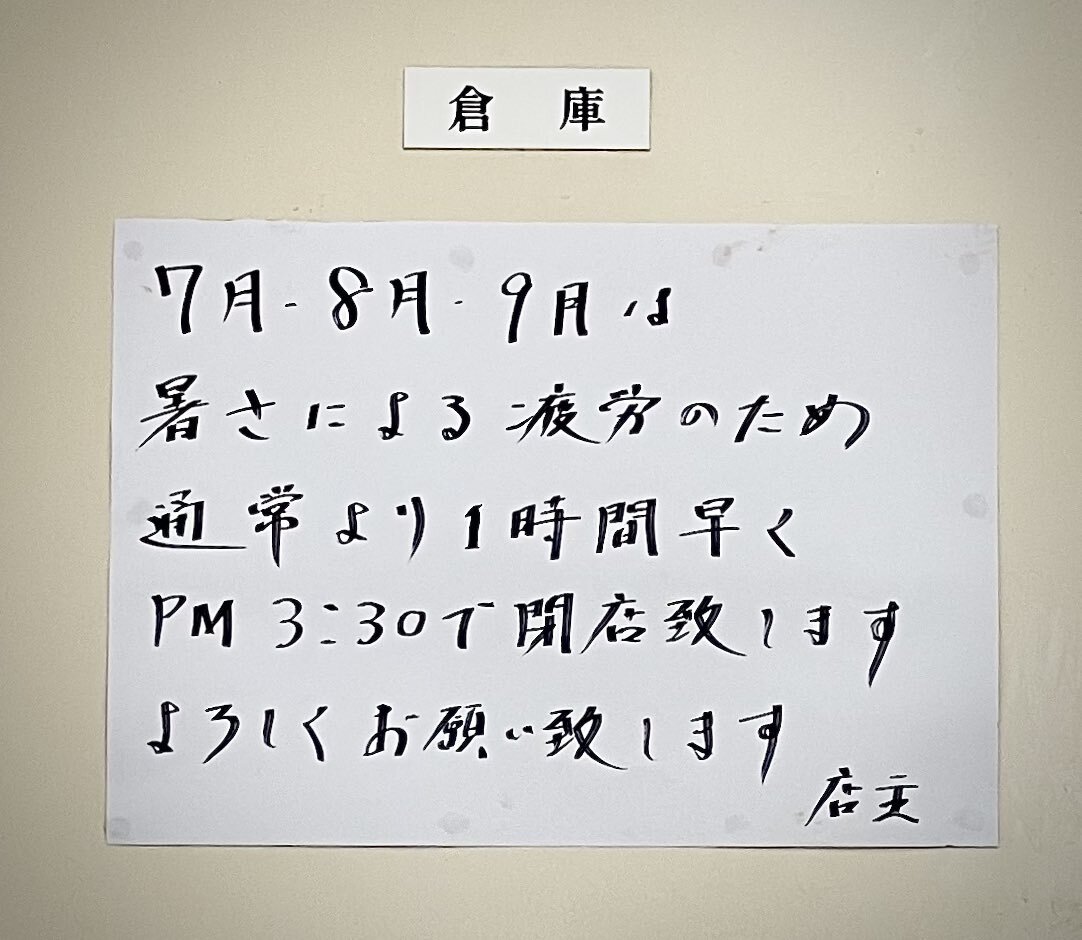 倉庫
7月・8月・9月は
暑さによる疲労のため
通常より1時間早く
PM 3:30で閉店致します
よろしくお願い致します
店主